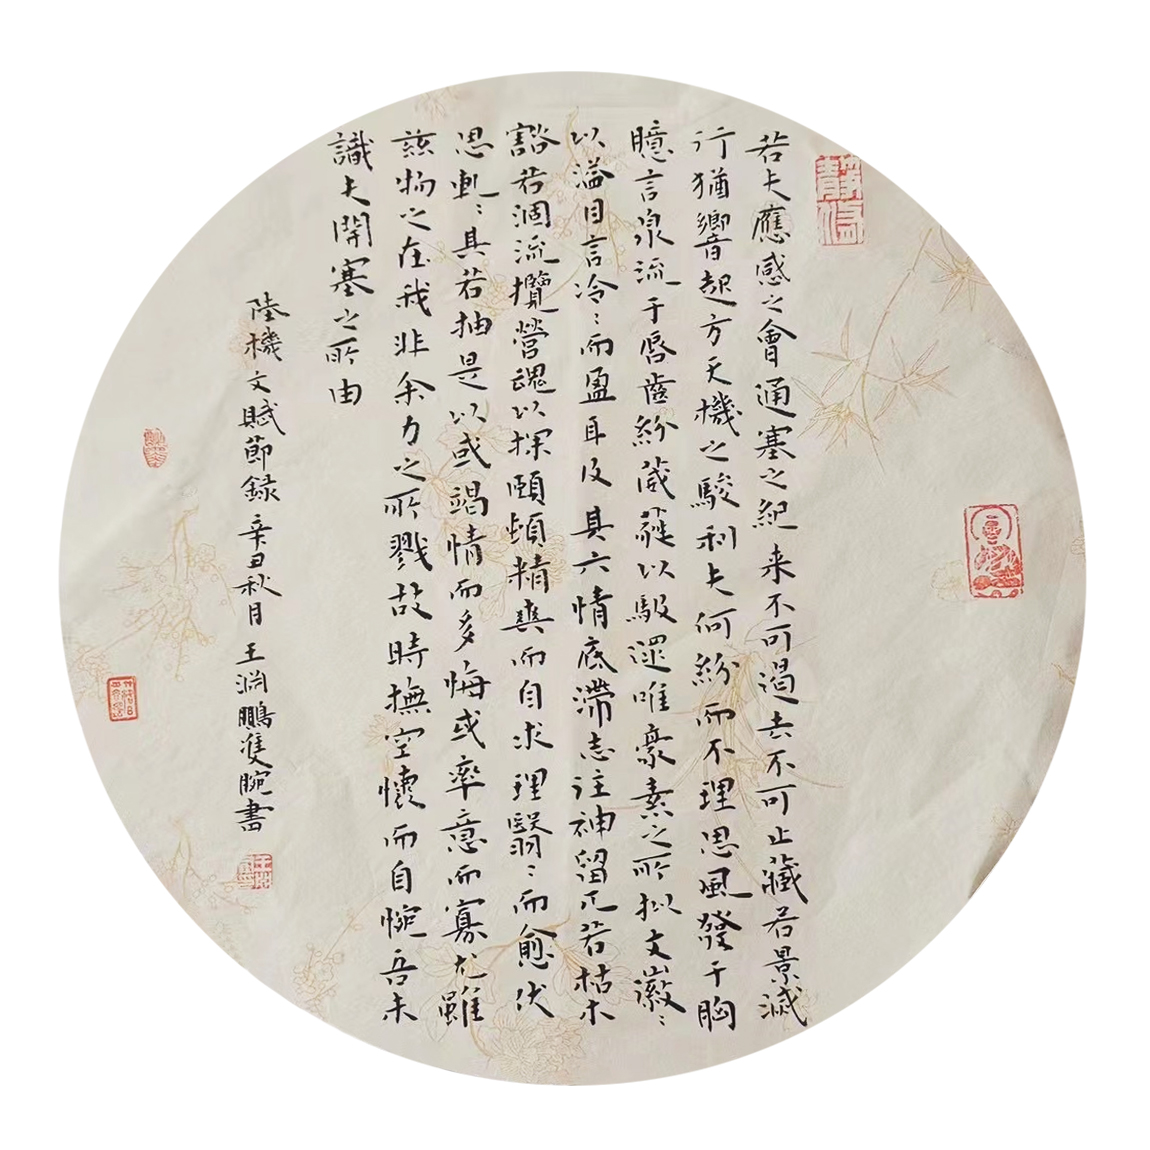 若夫應感之會通塞之紀来不可遏去不可止藏若景滅
行猶響起方天機之駿利夫何紛而不理思風發于胸
臆言泉流于唇齒紛葳蕤以馺遝唯豪素之所拟文徽々
以溢目言冷々而盈耳及其六情底滯志注神留兀若枯木
豁若涸流攬營魂以探頤頓精爽而自求理翳々而愈伏
思軋々其若抽是以或竭情而多悔或率意而寡尤雖
茲物之在我非余力之所戮故時撫空懷而自惋吾未
識夫開塞之所由
陸機文賦節録 辛丑秋月 王渊鵬隻腕書